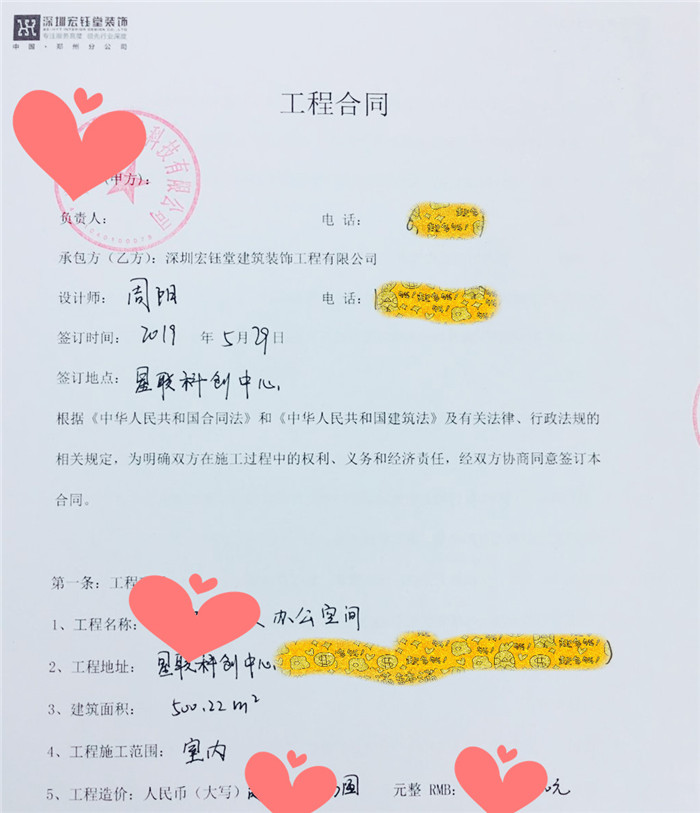 深圳宏钰堂装饰
中国·郑州分公司
工程合同
科技有限公司
(甲方):
负责人:
电 话:
承包方(乙方):深圳宏钰堂建筑装饰工程有限公司
设计师: 周阳
电 话:
签订时间: 2019 年 5月29日
签订地点: 星联科创中心.
根据《中华人民共和国合同法》和《中华人民共和国建筑法》及有关法律、行政法规的
相关规定,为明确双方在施工过程中的权利、义务和经济责任,经双方协商同意签订本
合同。
第一条:工程
1、工程名称: 办公空间
2、工程地址: 星联科创中心.
3、建筑面积: 500.22m²
4、工程施工范围: 室内
5、工程造价:人民币(大写) 圆 元整 RMB: 元